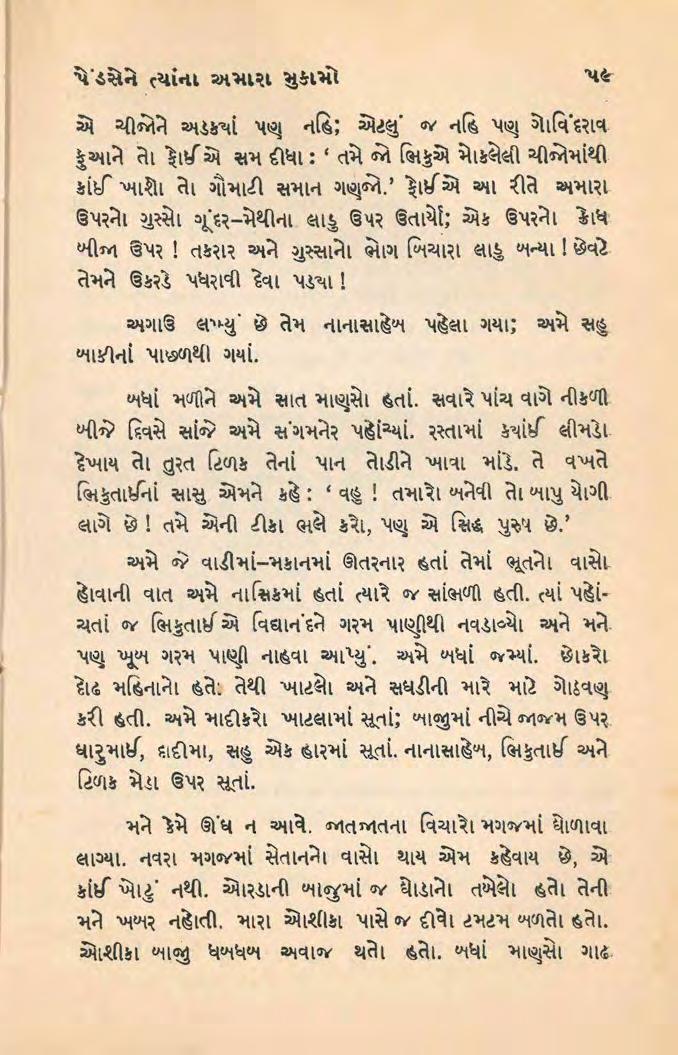 પેંડસેને ત્યાંના અમારા મુકામો ૫૯
એ ચીજોને અડક્યાં પણ નહિ; એટલું જ નહિ પણ ગોવિંદરાવ
ફુઆને તો ફોઈએ સમ દીધા : ‘ તમે જો ભિકુએ મોકલેલી ચીજોમાંથી
કાંઈ ખાશો તો ગૌમાટી સમાન ગણજો.’ ફોઈએ આ રીતે અમારા
ઉપરનો ગુસ્સો ગૂંદર–મેથીના લાડુ ઉપર ઉતાર્યો; એક ઉપરનો ક્રોધ
બીજા ઉપર ! તકરાર અને ગુસ્સાનો ભોગ બિચારા લાડુ બન્યા ! છેવટે
તેમને ઉકરડે પધરાવી દેવા પડ્યા !
અગાઉ લખ્યું છે તેમ નાનાસાહેબ પહેલા ગયા; અમે સહુ
બાકીનાં પાછળથી ગયાં.
બધાં મળીને અમે સાત માણસો હતાં. સવારે પાંચ વાગે નીકળી
બીજે દિવસે સાંજે અમે સંગમનેર પહોંચ્યાં. રસ્તામાં ક્યાંઈ લીમડો
દેખાય તો તુરત ટિળક તેનાં પાન તોડીને ખાવા માંડે. તે વખતે
ભિકુતાઈનાં સાસુ એમને કહે : ‘ વહુ ! તમારો બનેવી તો બાપુ યોગી
લાગે છે ! તમે એની ટીકા ભલે કરો, પણ એ સિદ્ધ પુરુષ છે.’
અમે જે વાડીમાં–મકાનમાં ઊતરનાર હતાં તેમાં ભૂતનો વાસો
હોવાની વાત અમે નાસિકમાં હતાં ત્યારે જ સાંભળી હતી. ત્યાં પહોં-
ચતાં જ ભિકુતાઈએ વિદ્યાનંદને ગરમ પાણીથી નવડાવ્યો અને મને
પણ ખૂબ ગરમ પાણી નાહવા આપ્યું. અમે બધાં જમ્યાં. છોકરો
દોઢ મહિનાનો હતો તેથી ખાટલો અને સઘડીની મારે માટે ગોઠવણ
કરી હતી. અમે માદીકરો ખાટલામાં સૂતાં; બાજુમાં નીચે જાજમ ઉપર
ધારુમાઈ, દાદીમા, સહુ એક હારમાં સૂતાં. નાનાસાહેબ, ભિકુતાઈ અને
ટિળક મેડા ઉપર સૂતાં.
મને કેમે ઊંઘ ન આવે. જાતજાતના વિચારો મગજમાં ઘોળાવા
લાગ્યા. નવરા મગજમાં સેતાનનો વાસો થાય એમ કહેવાય છે, એ
કાંઈ ખોટું નથી. ઓરડાની બાજુમાં જ ઘોડાનો તબેલો હતો તેની
મને ખબર નહોતી. મારા ઓશીકા પાસે જ દીવો ટમટમ બળતો હતો.
ઓશીકા બાજુ ધબધબ અવાજ થતો હતો. બધાં માણસો ગાઢ